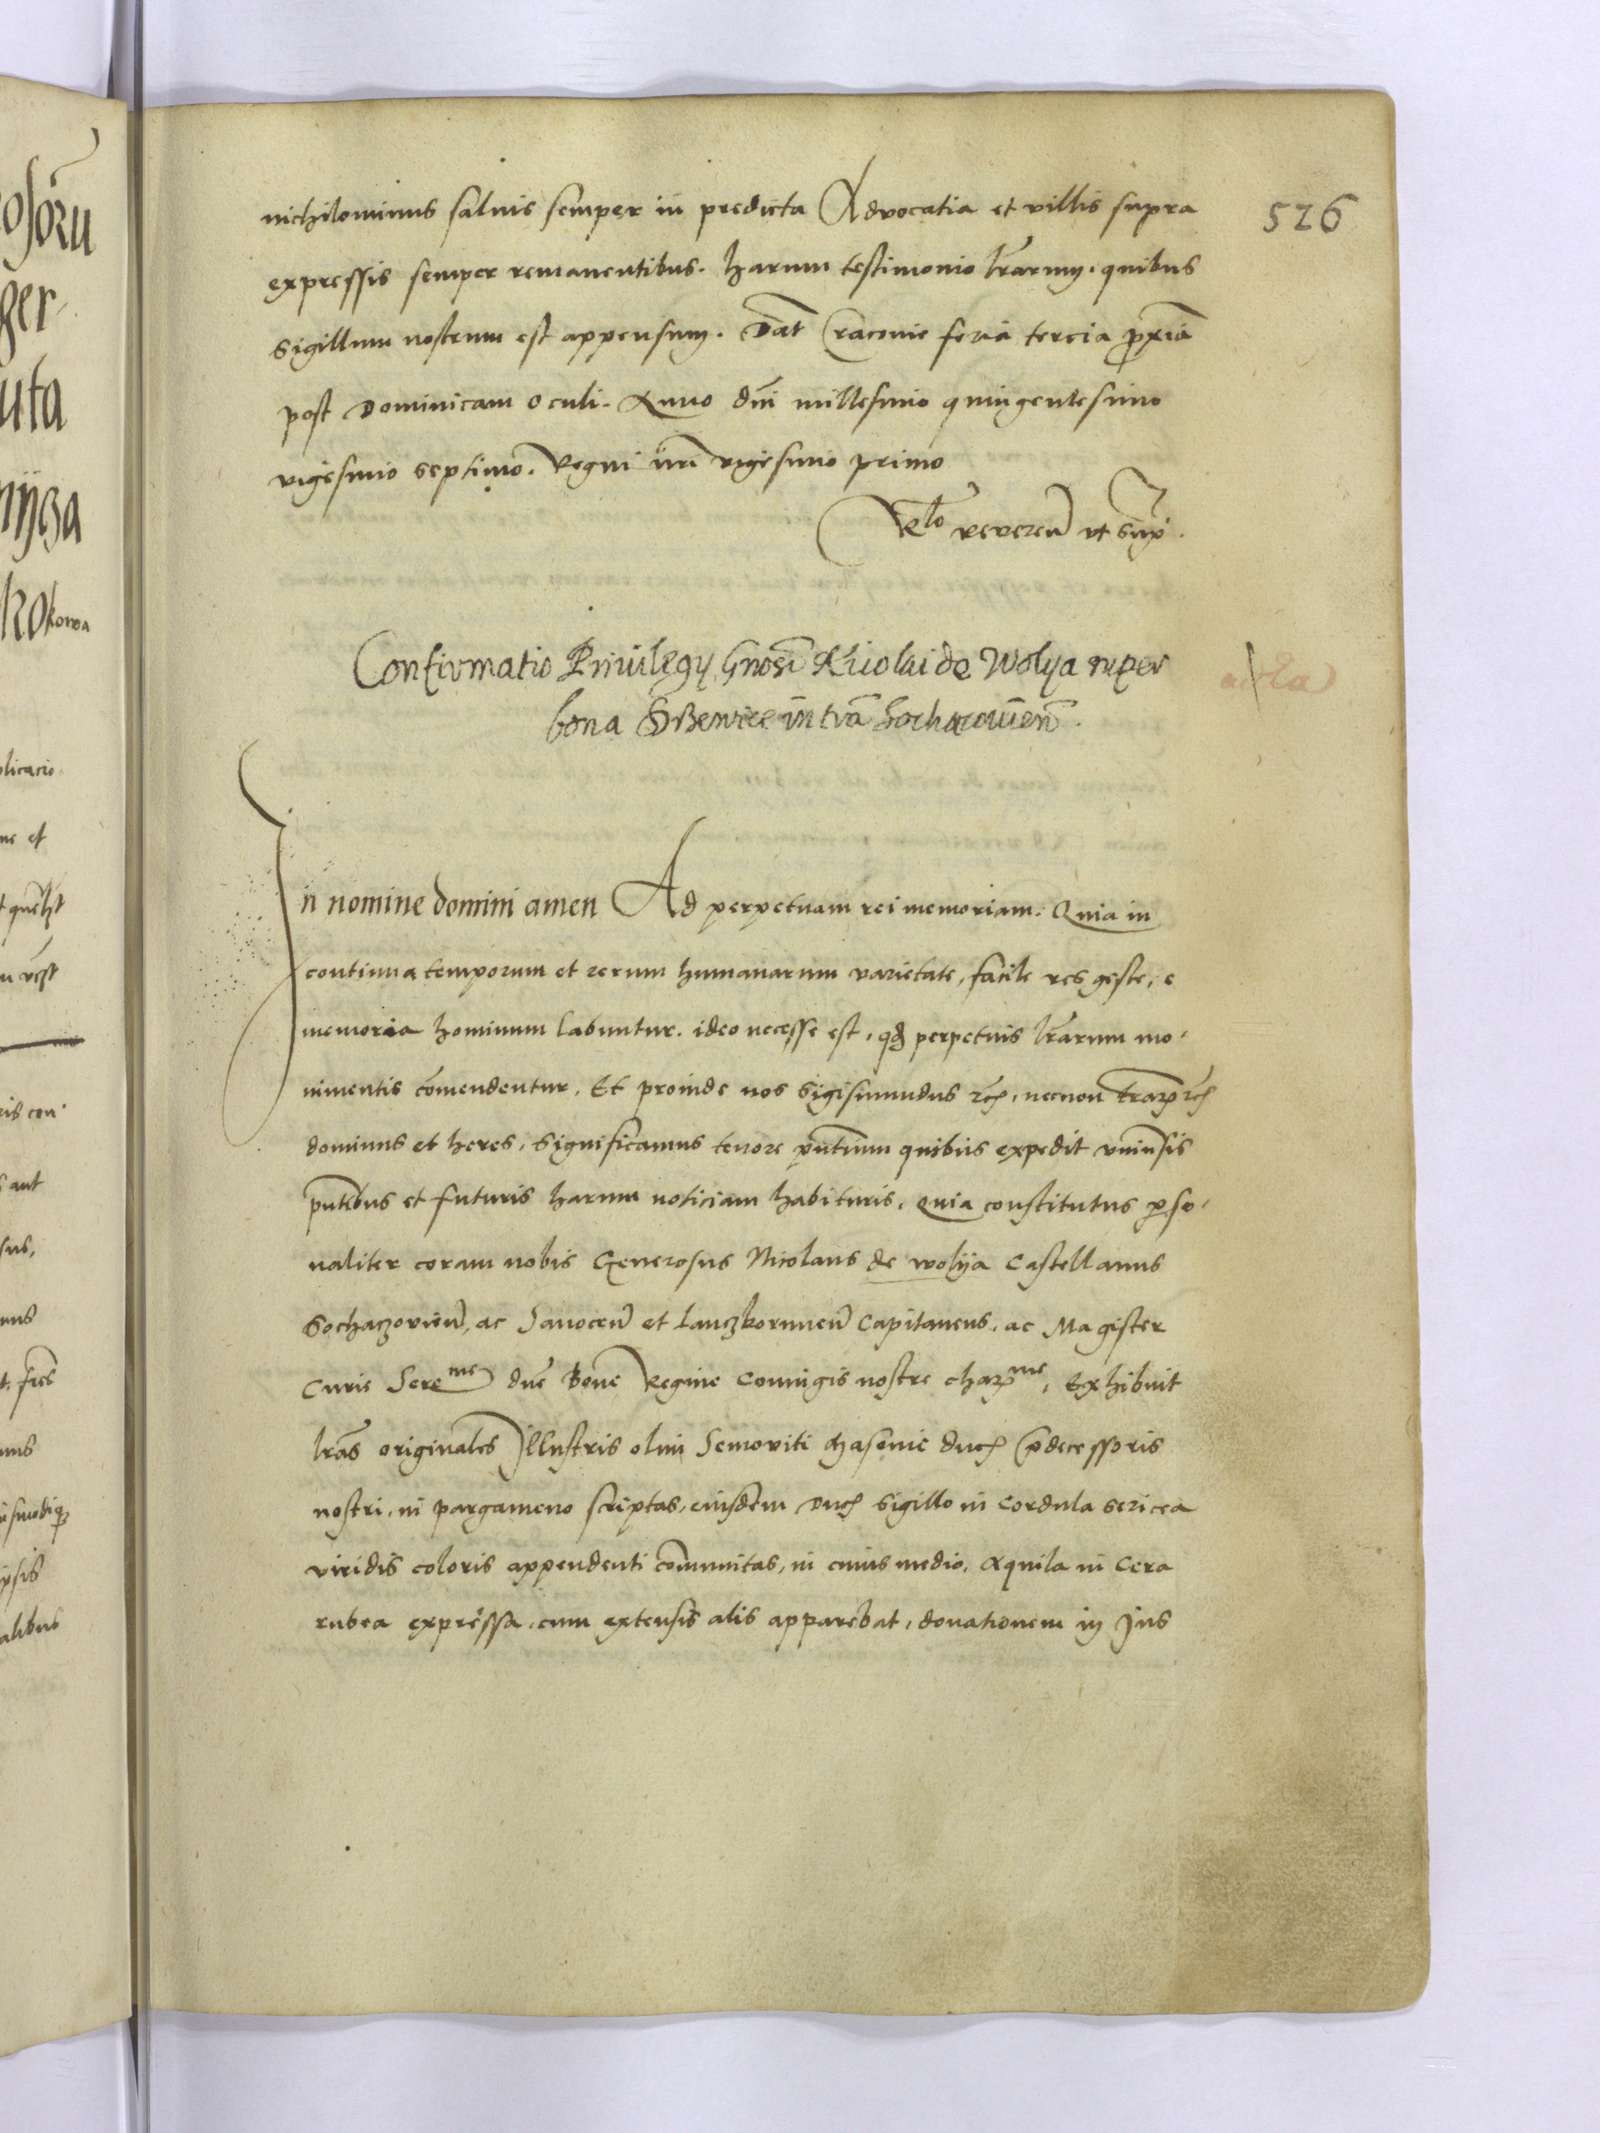 526
nichilominus saluis semper in predicta Advocatia et villis supra
expressis semper remanentibus. harum testimonio lrarum. quibus
Sigillum nostrum est appensum. Dat Cracovie feria tercia proxia
post Dominicam Oculi. Anno dni millesimo quingentesimo
vigesimo septimo. Regni nri vigesimo primo
Relo reveren vt supra.
Confirmatio Privilegy Gnosi Nicolai de Wolya super
bona in tra Sochaczovien.
In nomine domini amen Ad perpetuam rei memoriam. Quia in
continua temporum et rerum humanarum varietate, facile res geste, e
memoria hominum labuntur. ideo necesse est, qd perpetuis lrarum mo-
nimentis comendentur. Et proinde nos Sigismundus rex, necnon trarum etc
dominus et heres, Significamus tenore pntium quibus expedit vniuersis
pntibus et futuris harum noticiam habituris. Quia constitutus perso-
naliter coram nobis Generosus Nicolaus de wolya Castellanus
Sochaczovien, ac Sanocen et Lanczkorunen Capitaneus. ac Magister
Curie Sereme dne Bone Regine Coniugis nostre charme, Exhibuit
lras originales Illustris olim Semoviti Masovie ducis predecessoris
nostri, in pargameno scriptas, eiusdem Ducis Sigillo in Cordula sericea
viridis coloris appendenti communitas, in cuius medio, Aquila in Cera
rubea expressa, cum extensis alis apparebat, donationem in Jus